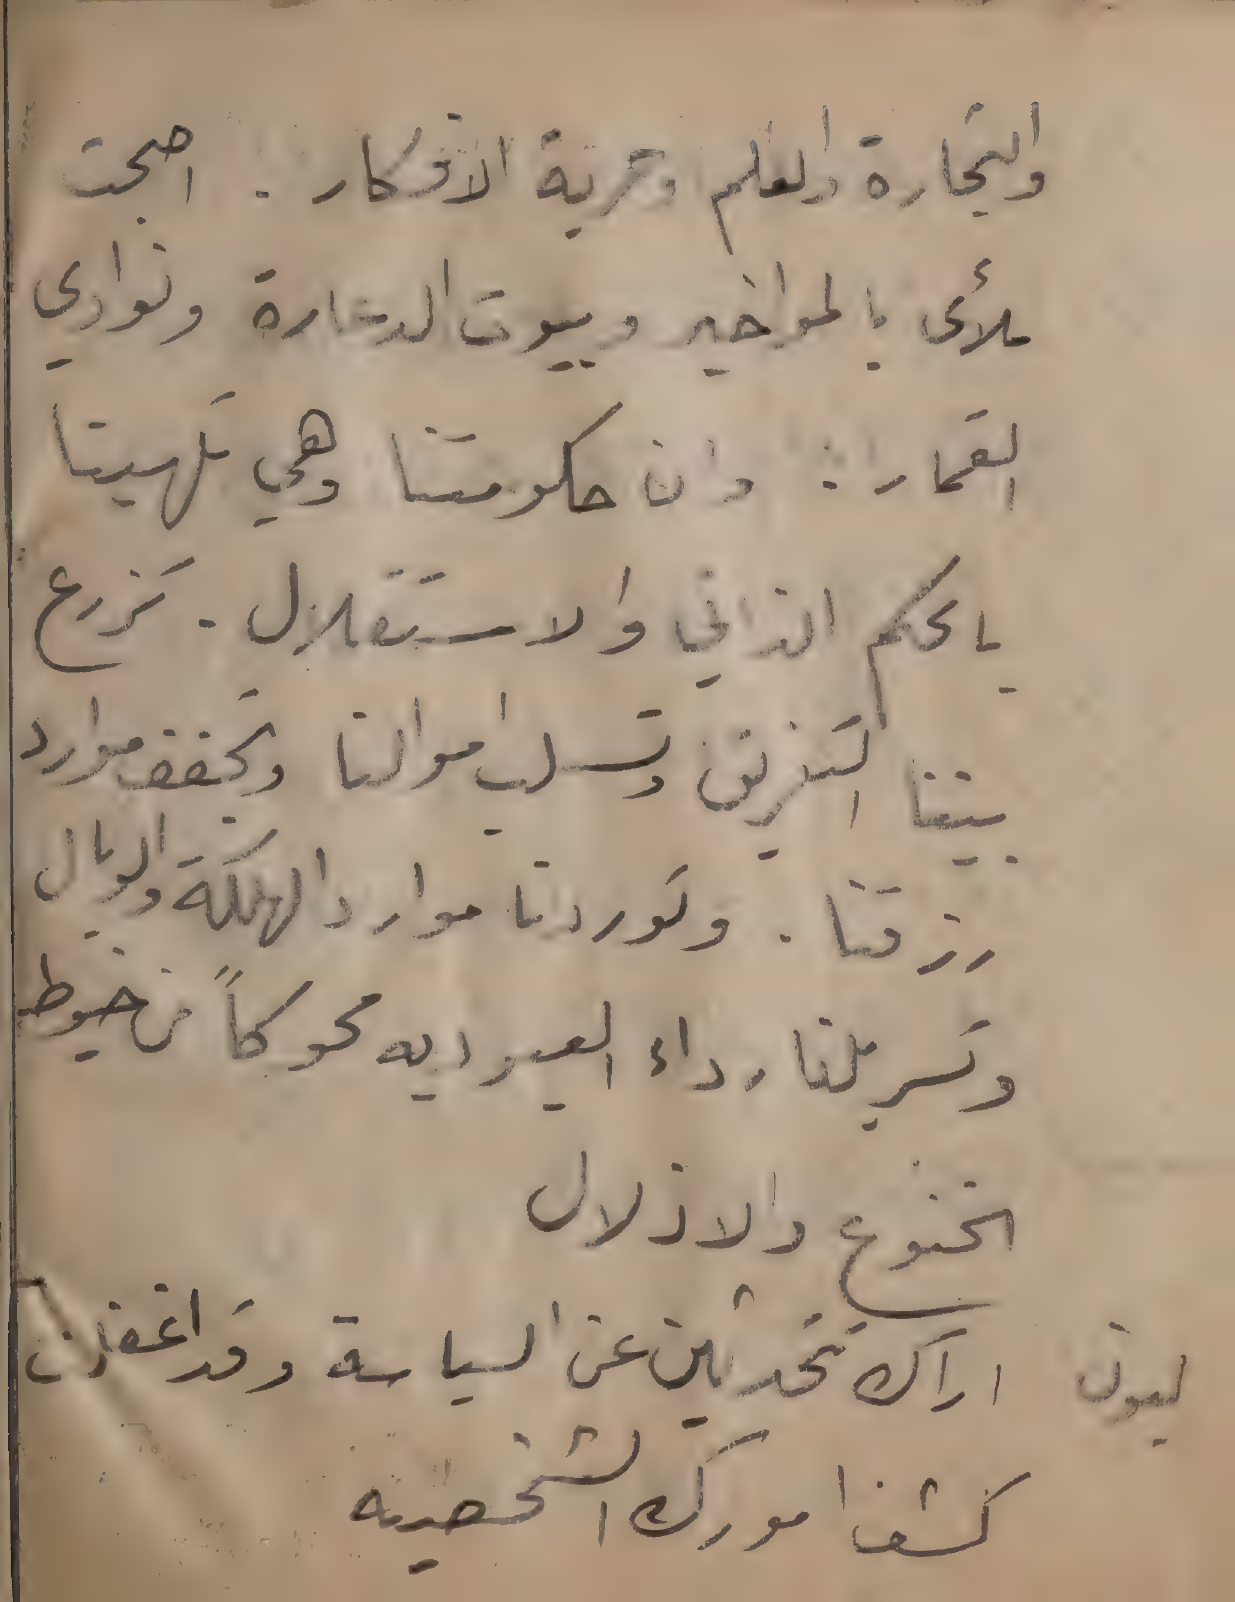 والتجارة والعلم وحرية الافكار . اصبحت
ملأى بالمواخير وبيوت الدعارة ونوادي
القمار : وان حكومتنا وهي تلهينا
بالحكم الذاتي والاستقلال . تزرع
بيننا التفريق وتسلب اموالنا وتجفف موارد
رزقنا . وتوردنا موارد الهلكة والوبال
وتسربلنا رداء العبوديه محوكاً من خيوط
الخنوع والاذلال
ليون اراك تتحدثين عن السياسة وقد اغفلت
كشف امورك الشخصيه